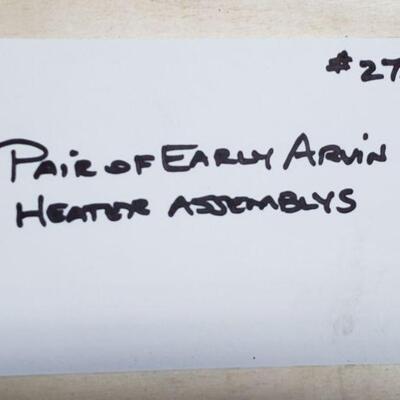 #27
PAIR OF EARLY ARVIN
HEATER ASSEMBLYS